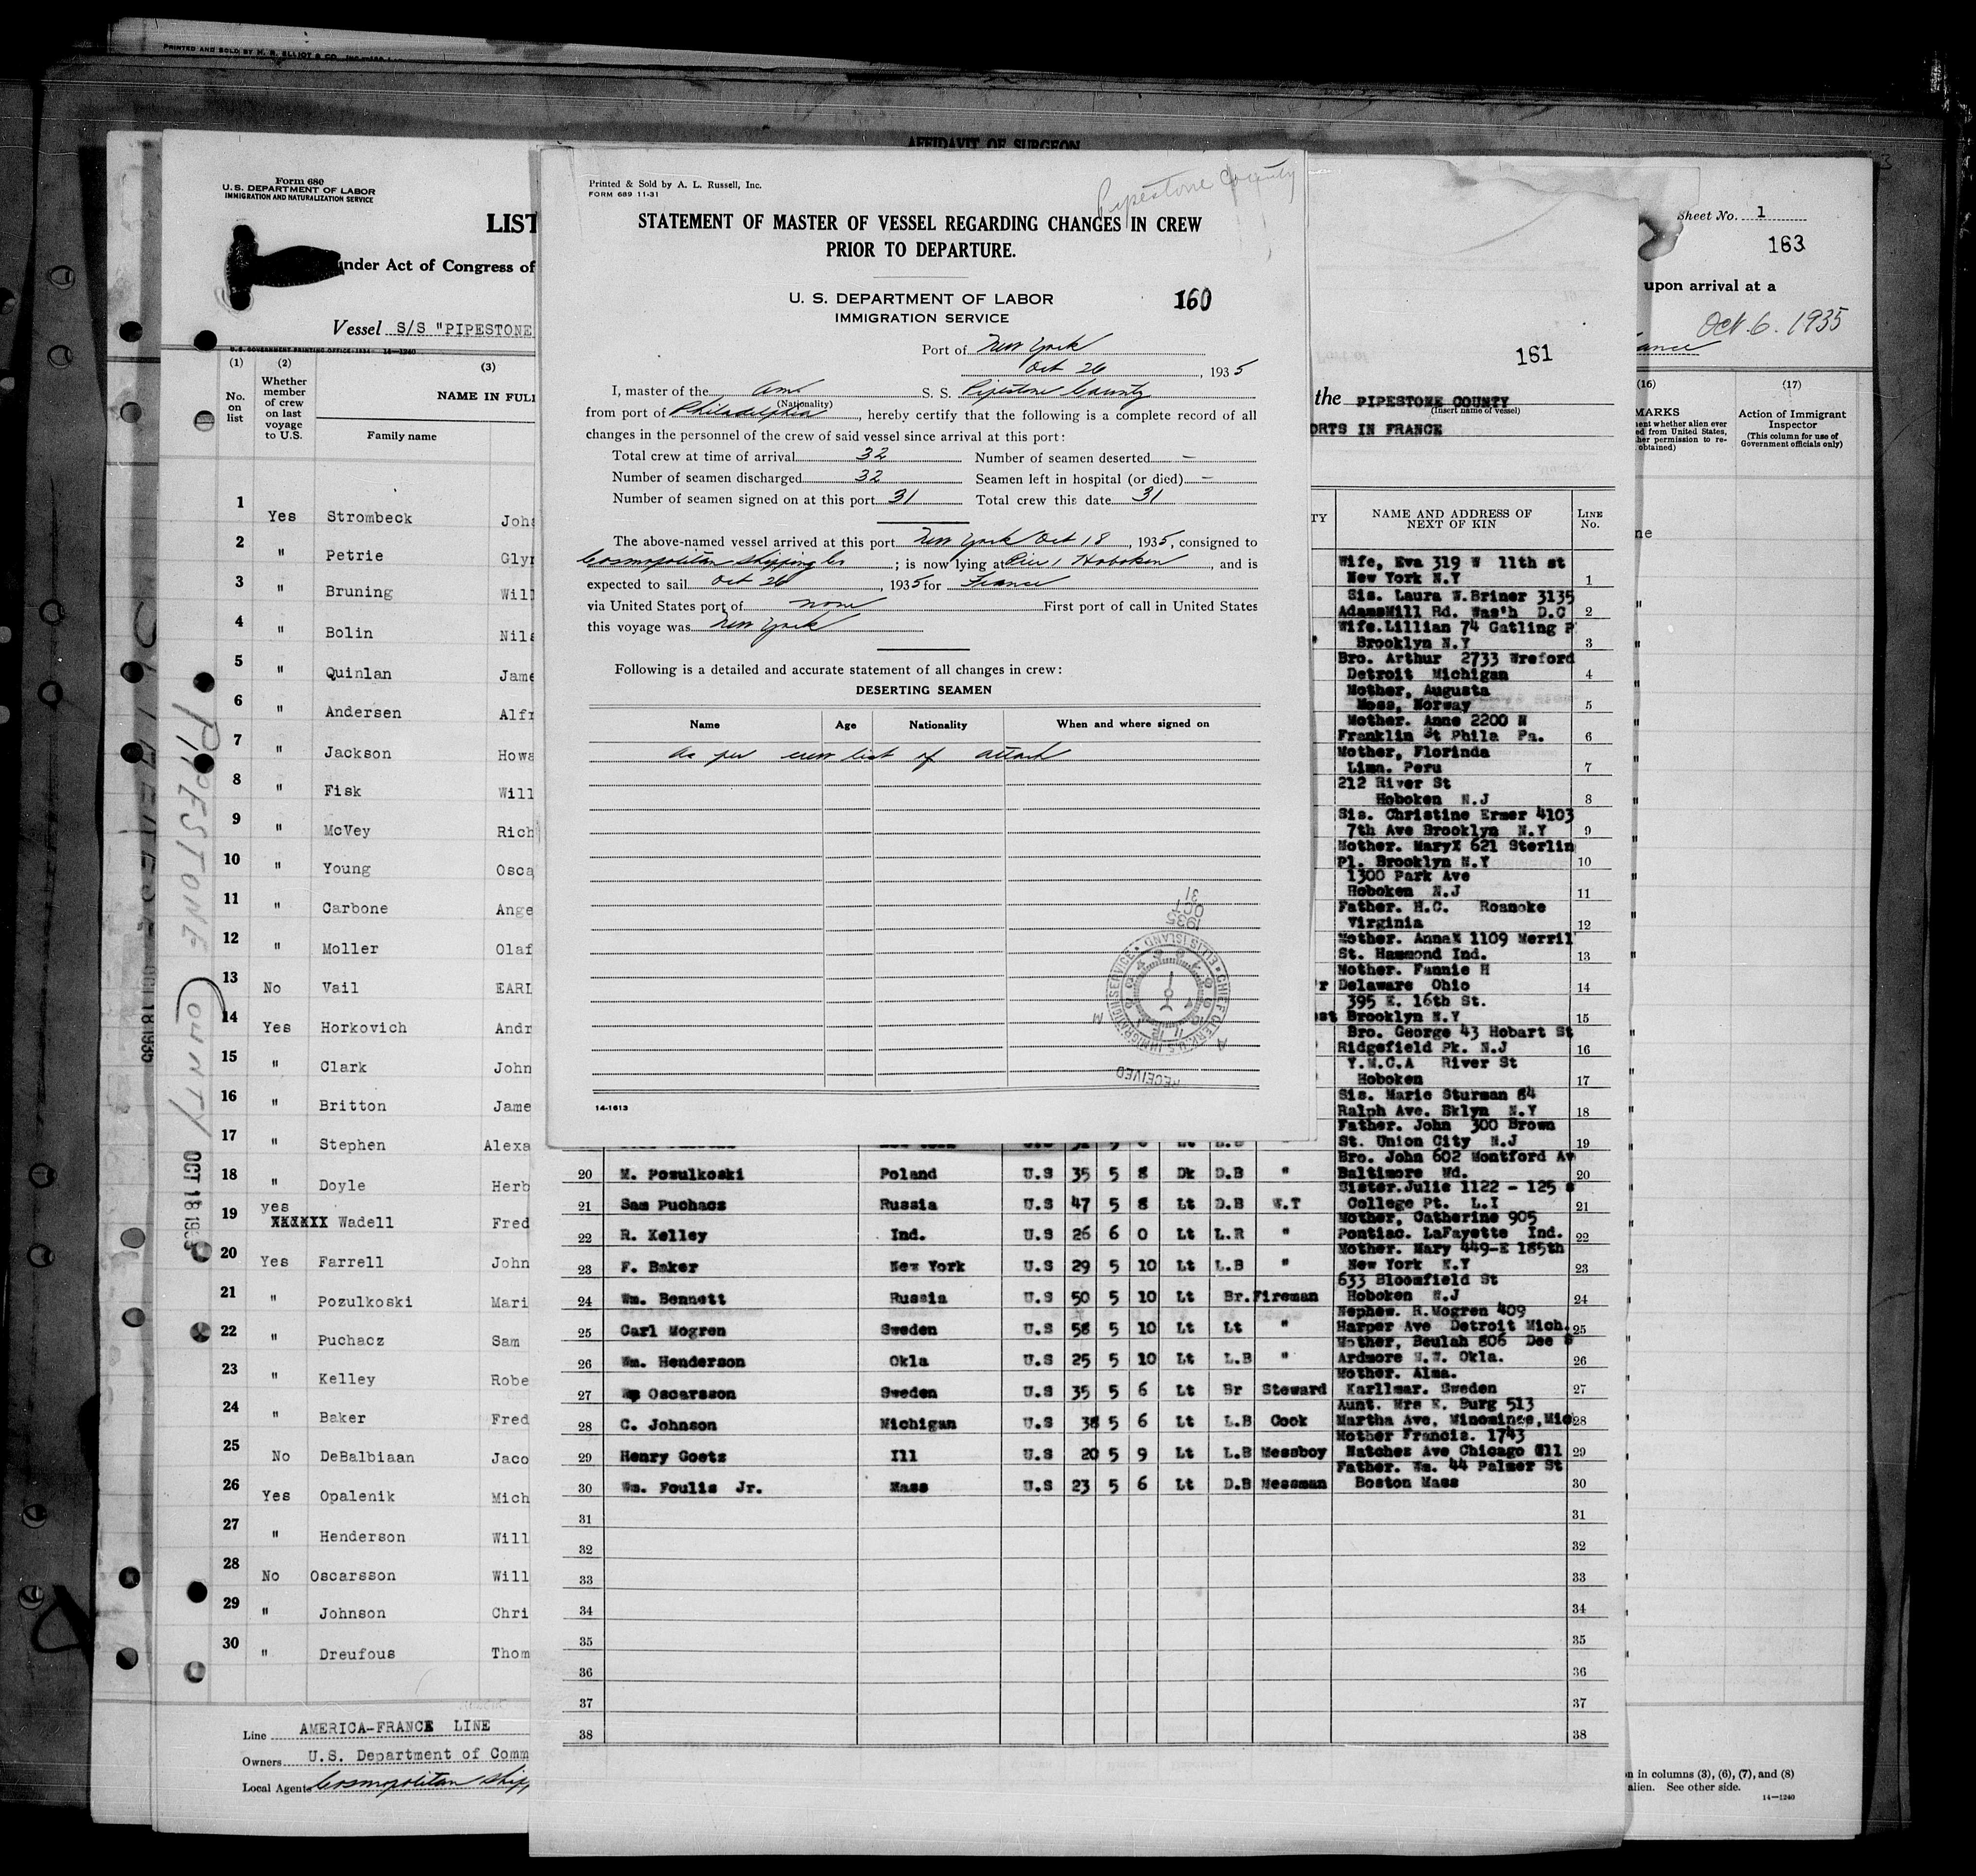 PRINTED AND SOLD BY N. S. ELLIOT & CO.
AFFIDAVIT OF SURGEON
Form 680
U.S. DEPARTMENT OF LABOR
IMMIGRATION AND NATURALIZATION SERVICE
LIST
under Act of Congress of
Vessel S/S "PIPESTONE
U.S. GOVERNMENT PRINTING OFFICE: 1934 14-1240
(1) (2) (3)
No. on list
Whether member of crew on last voyage to U.S.
NAME IN FULL
Family name
1 Yes Strombeck Joh
2 " Petrie Gly
3 " Bruning Wil
4 " Bolin Nil
5 " Quinlan Jam
6 " Andersen Alf
7 " Jackson How
8 " Fisk Will
9 " McVey Rich
10 " Young Osca
11 " Carbone Ange
12 " Moller Olaf
13 No Vail EARL
14 Yes Horkovich Andr
15 " Clark John
16 " Britton Jame
17 " Stephen Alexa
18 " Doyle Herb
19 yes XXXXXX Wadell Fred
20 Yes Farrell John
21 " Pozulkoski Mari
22 " Puchacz Sam
23 " Kelley Robe
24 " Baker Fred
25 No DeBalbiaan Jaco
26 Yes Opalenik Mich
27 " Henderson Will
28 No Oscarsson Will
29 " Johnson Chri
30 " Dreufous Thom
Line AMERICA-FRANCE LINE
Owners U.S. Department of Comm
Local Agents Cosmopolitan Shipp
PIPESTONE COUNTY
OCT 18 1935
OCT 18 1935
Printed & Sold by A. L. Russell, Inc.
FORM 689 11-31
Pipestone County
STATEMENT OF MASTER OF VESSEL REGARDING CHANGES IN CREW
PRIOR TO DEPARTURE.
U. S. DEPARTMENT OF LABOR
IMMIGRATION SERVICE
160
Port of New York
Oct 26, 1935
I, master of the Am S. S. Pipestone County
(Nationality)
from port of Philadelphia, hereby certify that the following is a complete record of all
changes in the personnel of the crew of said vessel since arrival at this port:
Total crew at time of arrival 32 Number of seamen deserted –
Number of seamen discharged 32 Seamen left in hospital (or died) –
Number of seamen signed on at this port 31 Total crew this date 31
The above-named vessel arrived at this port New York Oct 18, 1935, consigned to
Cosmopolitan Shipping Co; is now lying at Pier 1 Hoboken, and is
expected to sail Oct 26, 1935 for France
via United States port of none First port of call in United States
this voyage was New York
Following is a detailed and accurate statement of all changes in crew:
DESERTING SEAMEN
Name Age Nationality When and where signed on
As per crew list of attach
RECEIVED
CHIEF CLERK U.S. IMMIGRATION SERVICE ELLIS ISLAND
1935 OCT 31
14-1613
161
the PIPESTONE COUNTY
(Insert name of vessel)
ORTS IN FRANCE
TY
NAME AND ADDRESS OF NEXT OF KIN
LINE No.
Wife, Eva 319 W 11th st
New York N.Y 1
Sis. Laura W.Briner 3135
AdamsMill Rd. Was'h D.C 2
Wife.Lillian 74 Gatling P
Brooklyn N.Y 3
Bro. Arthur 2733 Wreford
Detroit Michigan 4
Mother, Augusta
Moss, Norway 5
Mother. Anne 2200 N
Franklin St Phila Pa. 6
Mother, Florinda
Lima. Peru 7
212 River St
Hoboken N.J 8
Sis. Christine Ermer 4103
7th Ave Brooklyn N.Y 9
Mother. MaryX 621 Sterlin
Pl. Brooklyn N.Y 10
1300 Park Ave
Hoboken N.J 11
Father. H.C. Roanoke
Virginia 12
Mother. AnnaX 1109 Merril
St. Hammond Ind. 13
Mother. Fannie H
Delaware Ohio 14
395 E. 16th St.
Brooklyn N.Y 15
Bro. George 43 Hobart St
Ridgefield Pk. N.J 16
Y.M.C.A River St
Hoboken 17
Sis. Marie Sturman 84
Ralph Ave. Bklyn N.Y 18
Father. John 300 Brown
St. Union City N.J 19
Bro. John 602 Montford Av
20 M. Pozulkoski Poland U.S 35 5 8 Dk D.B " Baltimore Md. 20
Sister.Julie 1122 - 125 s
21 Sam Puchacz Russia U.S 47 5 8 Lt D.B W.T College Pt. L.I 21
Mother, Catherine 905
22 R. Kelley Ind. U.S 26 6 0 Lt L.R " Pontiac. LaFayette Ind. 22
Mother. Mary 449-E 185th
23 F. Baker New York U.S 29 5 10 Lt L.B " New York N.Y 23
633 Bloomfield St
24 Wm. Bennett Russia U.S 50 5 10 Lt Br. Fireman Hoboken N.J 24
Nephew. R.Mogren 409
25 Carl Mogren Sweden U.S 58 5 10 Lt Lt " Harper Ave Detroit Mich. 25
Mother, Beulah 806 Dee S
26 Wm. Henderson Okla U.S 25 5 10 Lt L.B " Ardmore N.W. Okla. 26
Mother. Alma.
27 Oscarsson Sweden U.S 35 5 6 Lt Br Steward Karllmar. Sweden 27
Aunt. Mrs E. Burg 513
28 C. Johnson Michigan U.S 38 5 6 Lt L.B Cook Martha Ave, Minominee, Mic 28
Mother Francis. 1743
29 Henry Goetz Ill U.S 20 5 9 Lt L.B Messboy Natchez Ave Chicago Ill 29
Father. Wm. 44 Palmer St
30 Wm. Foulis Jr. Mass U.S 23 5 6 Lt D.B Messman Boston Mass 30
31 31
32 32
33 33
34 34
35 35
36 36
37 37
38 38
Sheet No. 1
163
upon arrival at a
Oct. 6. 1935
ance
(16) (17)
MARKS
ent whether alien ever
ed from United States,
her permission to re-
obtained)
Action of Immigrant Inspector
(This column for use of Government officials only)
ne
n in columns (3), (6), (7), and (8)
alien. See other side.
14-1240